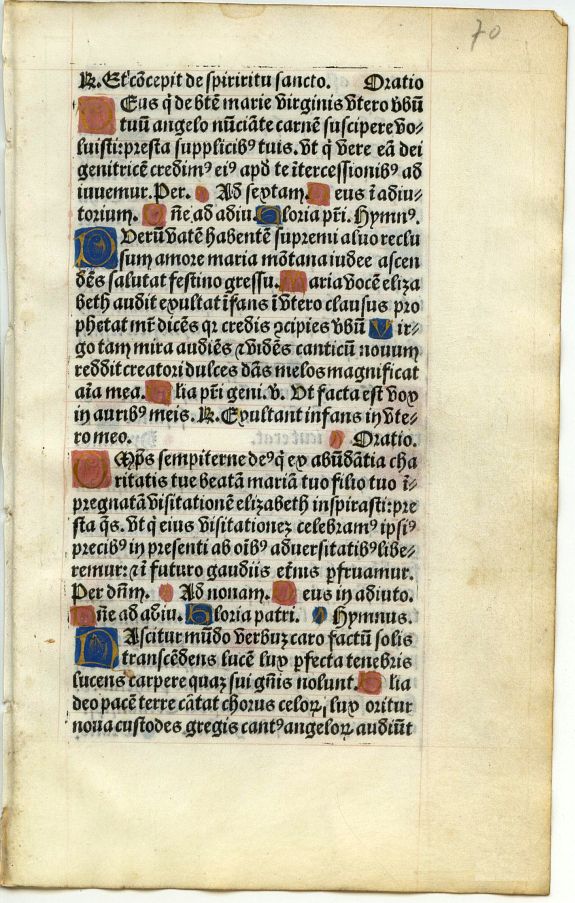 70
R̃. Et cõcepit de spiriritu sancto. Oratio
DEus q̃ de btẽ marie virginis vtero vbũ
tuũ angelo nũciãte carnẽ suscipere vo⸗
luisti: presta supplicibꝰ tuis. vt q̃ vere eã dei
genitricẽ credimꝰ eiꝰ apd̃ te ĩtercessionibꝰ ad
iuuemur. Per. Ad sextam. Deus ĩ adiu⸗
torium. Dñe ad adiu. Gloria pr̃i. Hymnꝰ.
Pverũ vatẽ habentẽ supremi aluo reclu
sum amore maria mõtana iudee ascen
dẽs salutat festino gressu. Maria vocẽ eliza
beth audit exultat ĩfans ĩ vtero clausus pro
phetat mr̃ dicẽs qr credis ↄcipies vbũ Vir⸗
go tam mira audiẽs ⁊ vidẽs canticũ nouum
reddit creatori dulces dãs melos magnificat
aĩa mea. Glia pr̃i geni. v̄. Vt facta est vox
in auribꝰ meis. R̃. Exultant infans in vte⸗
ro meo. Oratio.
OMp̃s sempiterne deꝰ q̃ ex abũdãtia cha
ritatis tue beatam̃ mariã tuo filio tuo ĩ⸗
pregnatã visitationẽ elizabeth inspirasti: pre
sta q̃s. vt q̃ eius visitationeȝ celebramꝰ ipsiꝰ
precibꝰ in presenti ab oĩbꝰ aduersitatibꝰ libe⸗
remur: ⁊ ĩ futuro gaudiis etn̄is ꝑfruamur.
Per dñm. Ad nonam. Deus in adiuto.
Dñe ad adiu. Gloria patri. Hymnus.
NAscitur mũdo verbuȝ caro factũ solis
transcẽdens lucẽ lux ꝑfecta tenebris
lucens carpere quaȝ sui gñis nolunt. Glia
deo pacẽ terre cãtat chorus celoꝝ, lux oritur
noua custodes gregis cantꝰ angeloꝝ audiũt